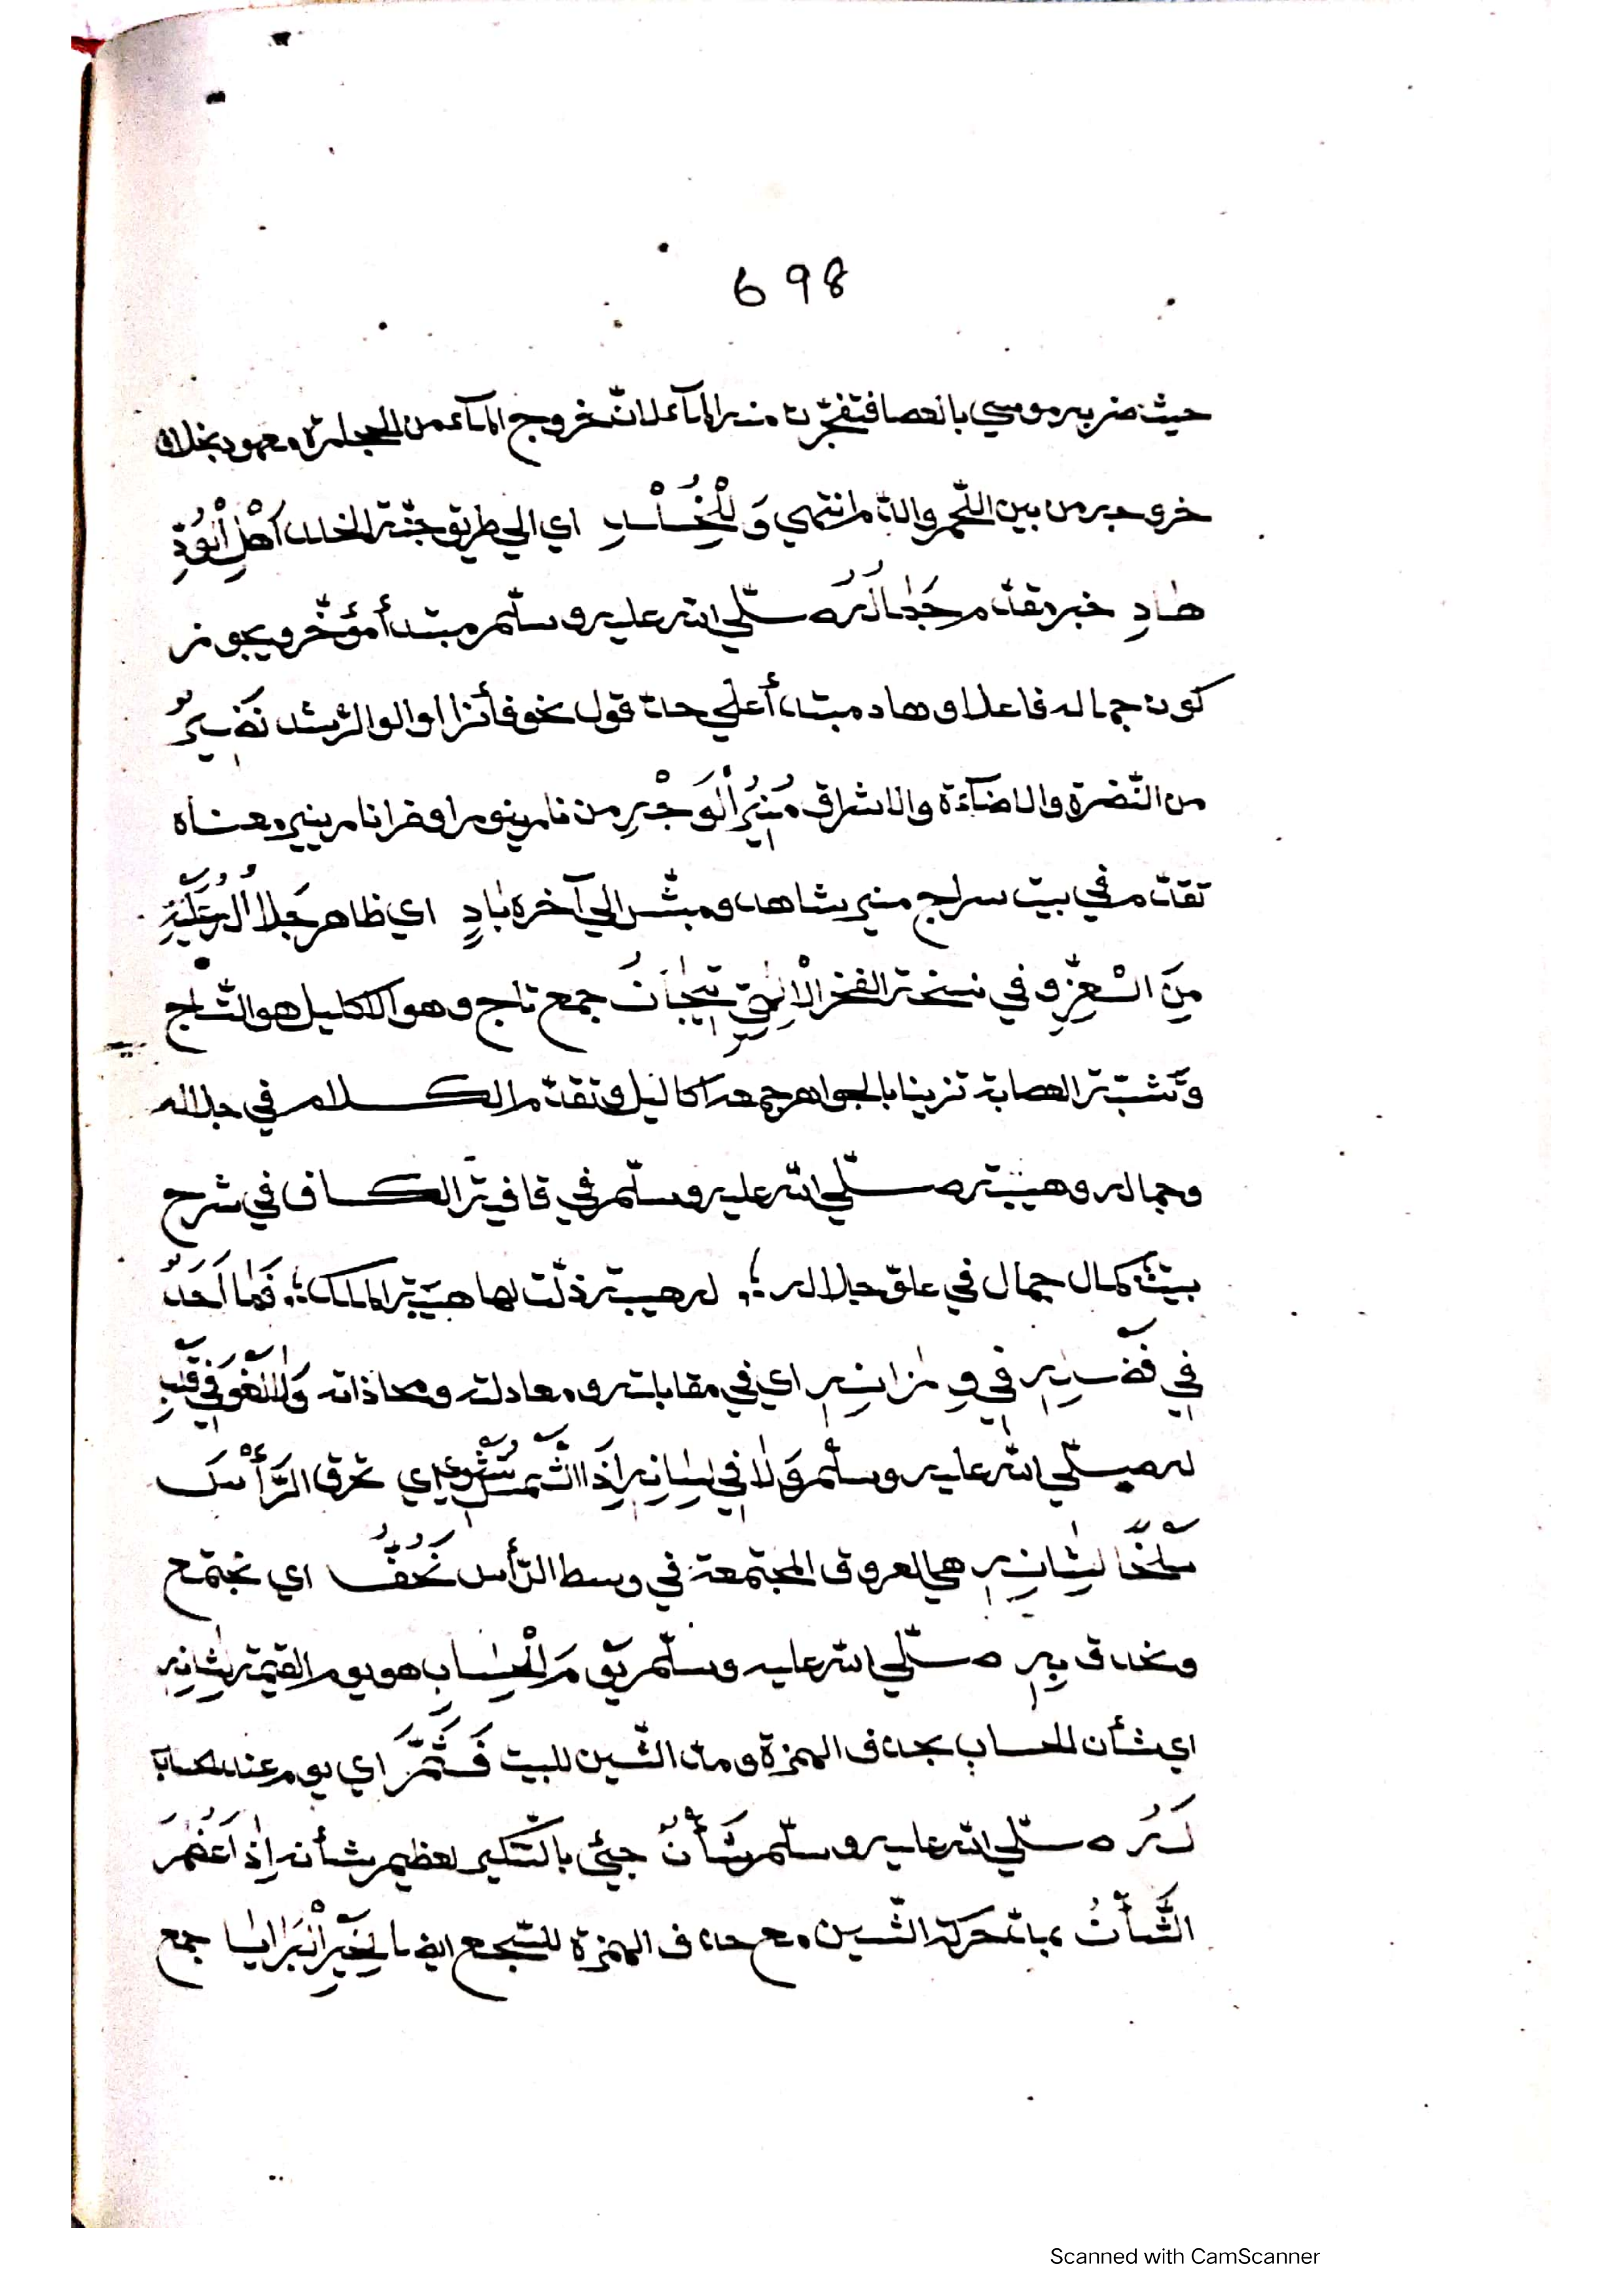 698
حيث ضربه موسي بالعصا فتفجّرت منه المآء لانّ خروج المآء من الحجارة معهود بخلاف
خروجه من بين اللّحم والدّم انتهي وَ لِلْخُلْدِ اي الي طريق جنّة الخلد اَهْلَ الْوُدِّ
هٰادِ خبر مقدّم جَمٰالُهُ صلّي الله عليه وسلّم مبتدأ مؤخّر ويجوز
كون جماله فاعلا وهاد مبتدأ علي حدّ قول نحو فائز اولوا الرّشد نَضِيرُ
من النّضرة والاضآءة والاشراق مُنِيرُ الْوَجْهِ من نار ينور او من انار ينير ومعناه
تقدّم في بيت سراج منير شاهد ومبشّر الي آخره بٰادٍ اي ظاهر جَلالُهُ عَلَيْهِ
مِنَ الْعِزِّ و في نسخة الفخر الْاِلٰهِيِّ تِيجٰانُ جمع تاج وهو الاكليل هو التّاج
وَشبه العصابة تزينا بالجواهر جمعه اكاليل وتقدّم الكلام في جلاله
وجماله وهيبته صلّي الله عليه وسلّم في قافية الكاف في شرح
بيت كمال جمال في علوّ جلاله ؛ له هيبة ذلّت لها هيبة الملك ؛ فَمٰا اَحَدٌ
فِي فَضْلِهِ فِي وِزٰانِهِ اي في مقابلته ومعادلته ومحاذاته وَلَا اللَّغْوُ فِي قَلْبٍ
له صلّي الله عليه وسلّم وَلٰا فِي لِسٰانِهِ اِذَا الشَّمْسُ تُشْوِي اي تحرق الرَّأْسَ
سَلْخًا لِشٰانِهِ هي العروق المجتمعة في وسط الرّأس نَحُفُّ اي نجتمع
ونحدق بِهِ صلّي الله عليه وسلّم يَوْمَ الْحِسٰابِ هو يوم القيمة لِشٰانِهِ
اي شأن الحساب بحذف الهمزة ومدّ الشّين للبيت فَثَمَّ اي يوم عند الحساب
لَهُ صلّي الله عليه وسلّم شَأْنٌ جيئ بالتّنكير لعظيم شأنه اِذْ اَعْظَمَ
الشَّأْنُ بالحركة الشّين مع حذف الهمزة للسّجع ايضا لِخَيْرِ الْبَرٰايٰا جمع
Scanned with CamScanner